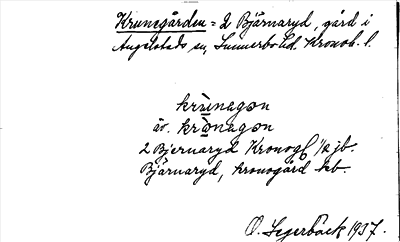 Krunegården = 2 Bjärnaryd, gård i
Angelstads sn, Sunnerbo hd. Kronob. l.
krùnagọn
äv. krònagọn
2 Bjernaryd Kronogd 1/2 jb.
Bjärnaryd, kronogård kb.
O. Segerbäck 1937.